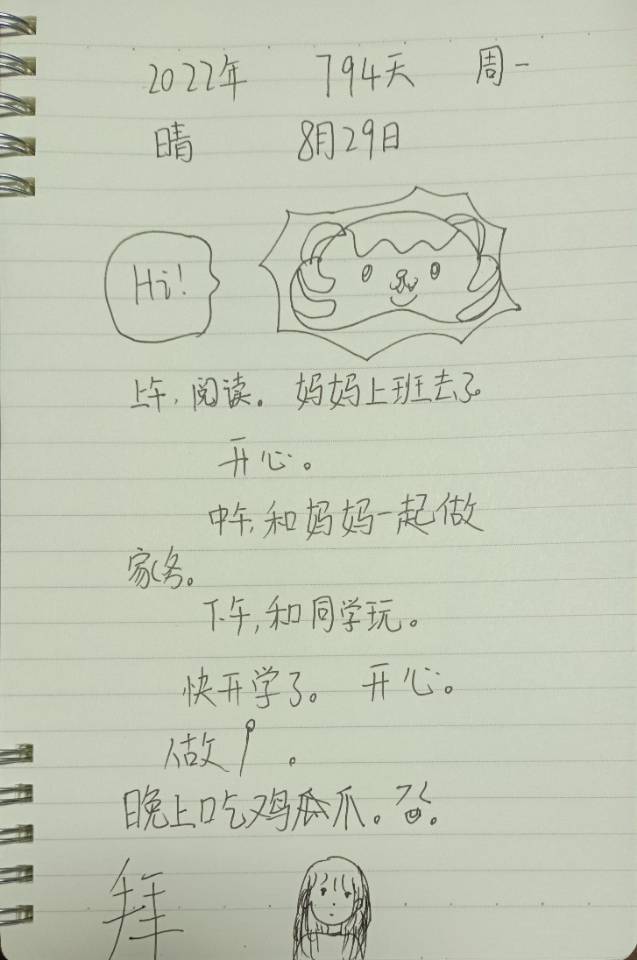 2022年 794天 周一
晴 8月29日
Hi!
上午,阅读。 妈妈上班去了
开心。
中午,和妈妈一起做
家务。
下午,和同学玩。
快开学了。 开心。
做 。
晚上吃鸡瓜爪。
拜